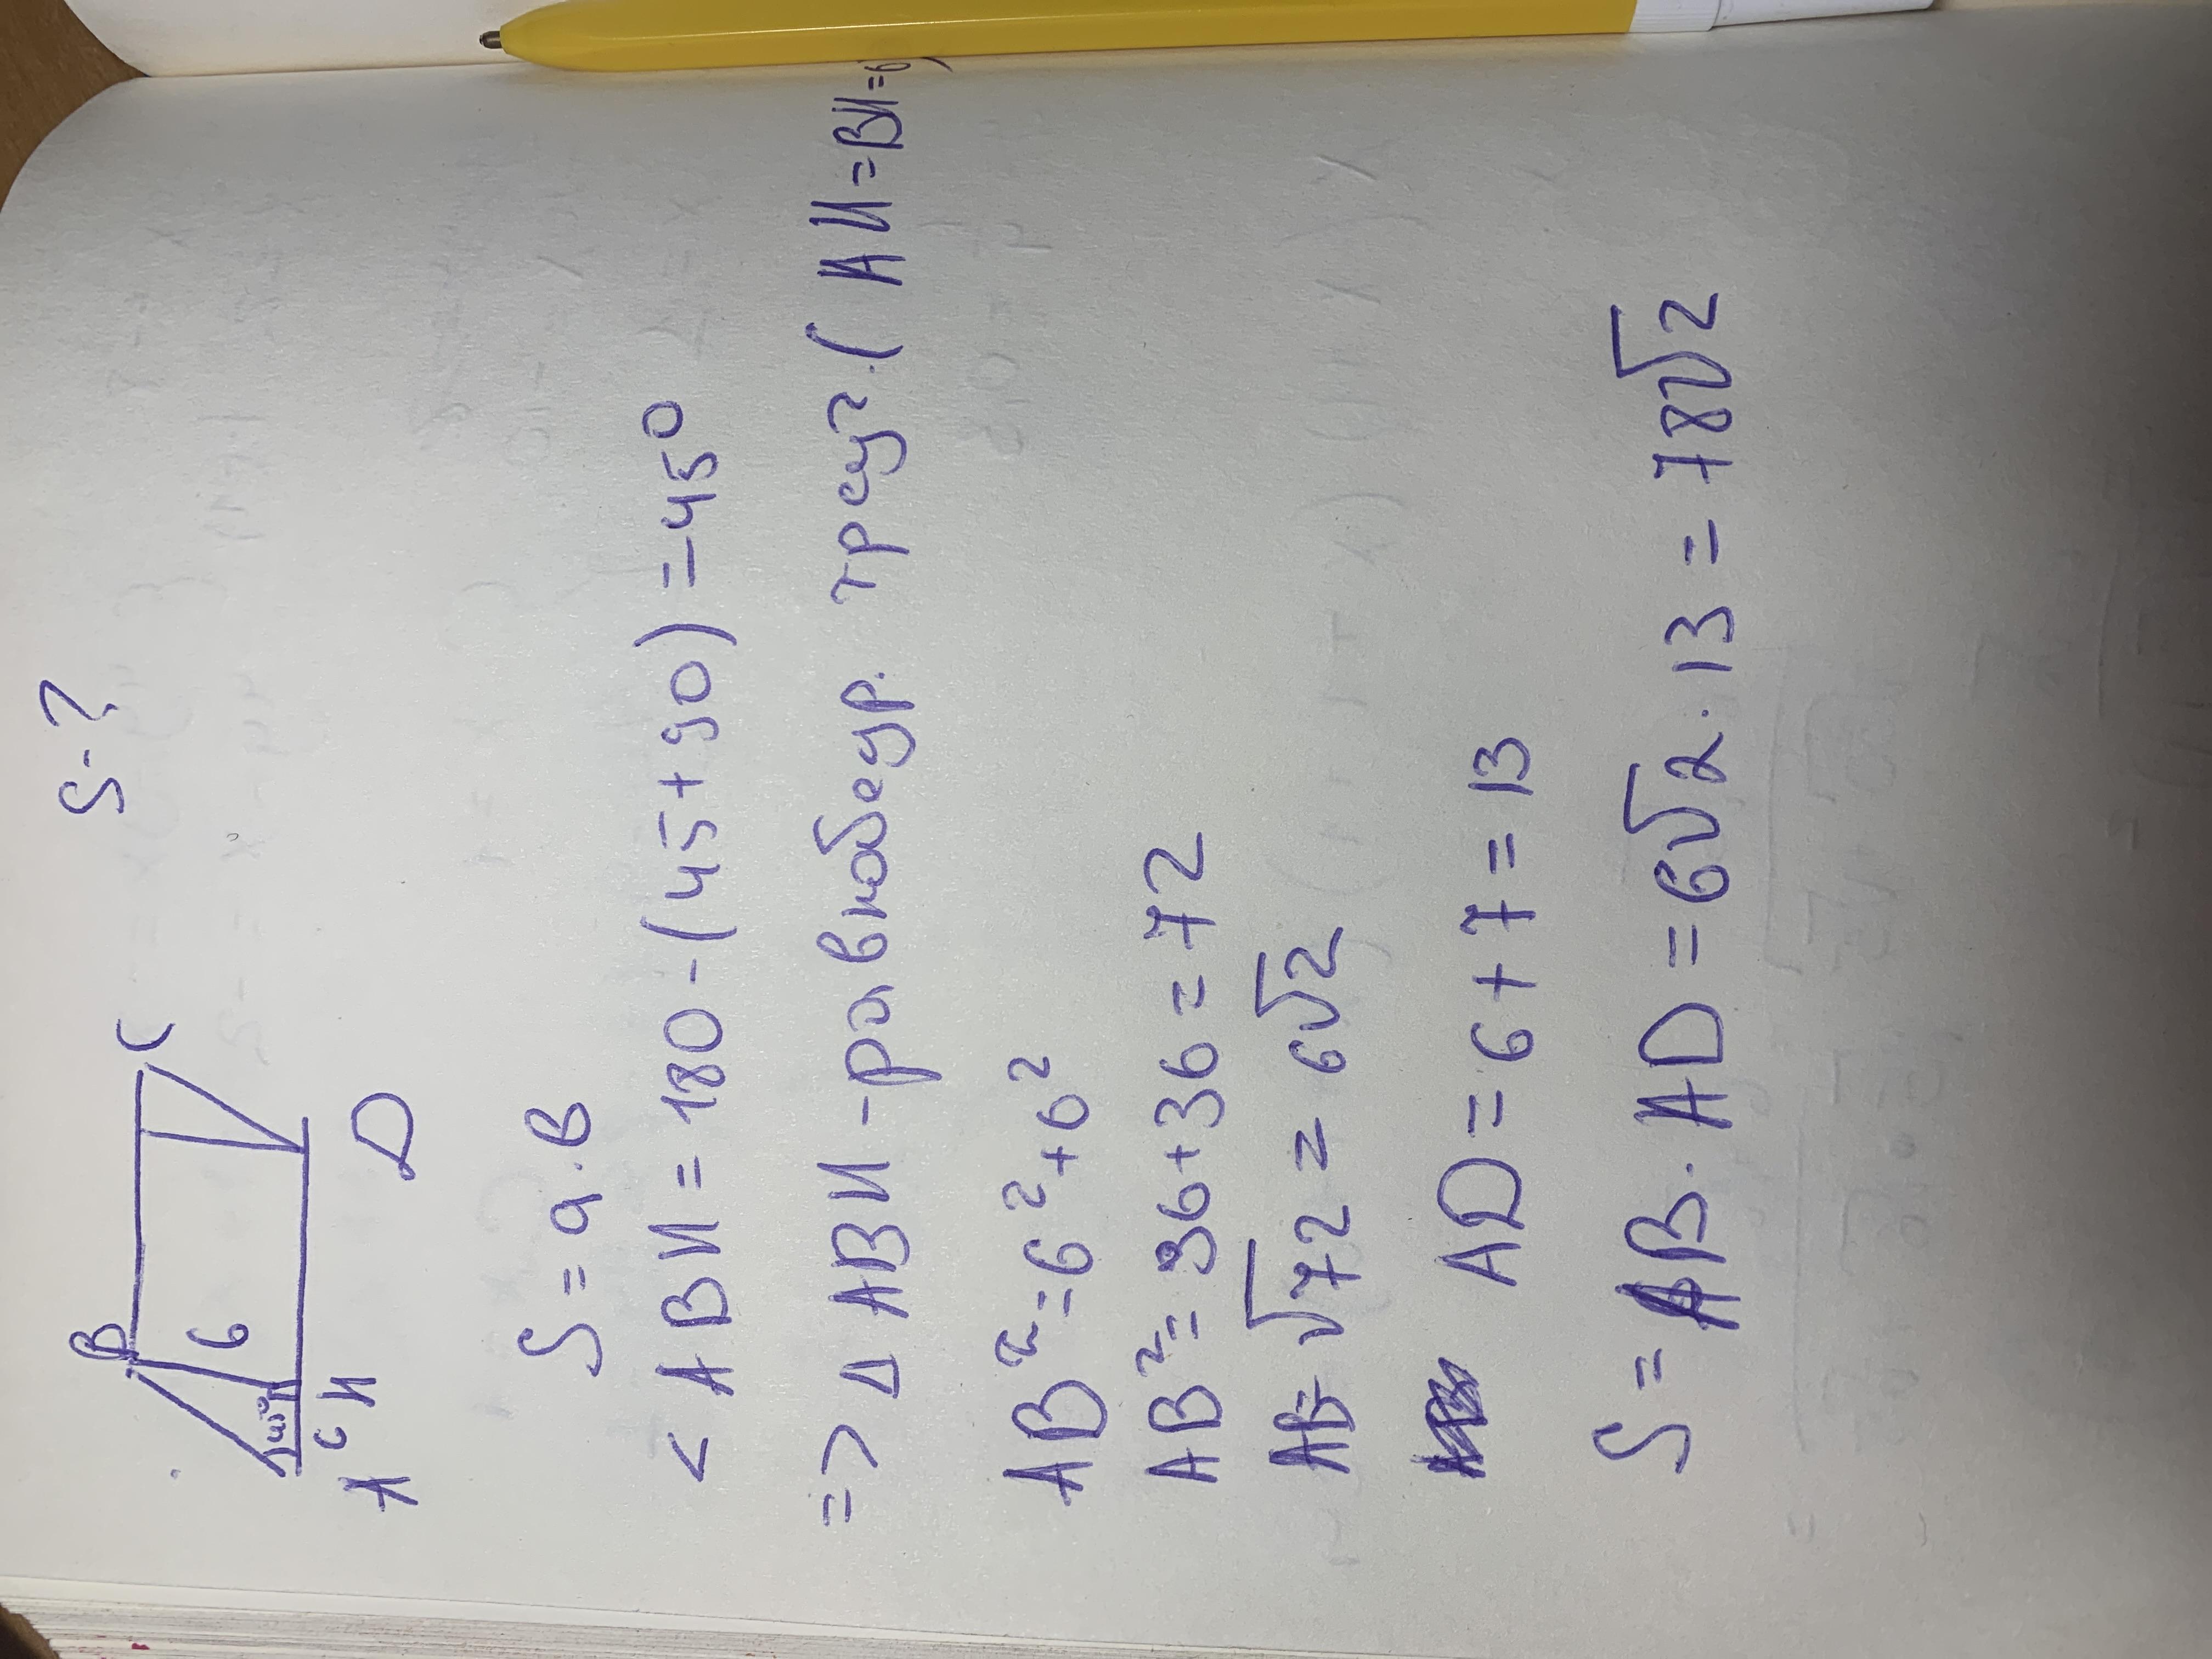 S-?
B
C
6
45°
A
6
H
D
S = a · b
< ABH = 180 - (45 + 90) = 45°
=> Δ ABH - равнобедр. треуг. ( AH = BH = 6)
AB² = 6² + 6²
AB² = 36 + 36 = 72
AB = √72 = 6√2
AD = 6 + 7 = 13
S = AB · AD = 6√2 · 13 = 78√2